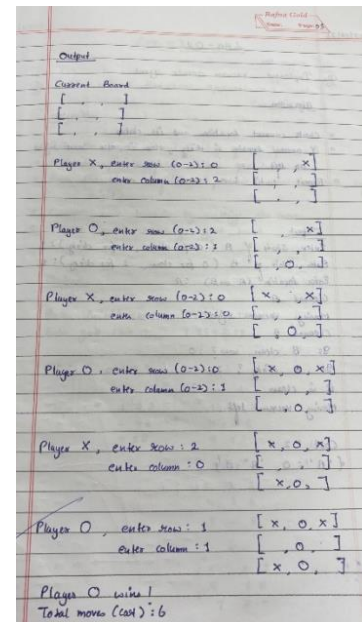 Output
Current Board
[ , , ]
[ , , ]
[ , , ]
Player X, enter row (0-2): 0 [ , , x]
enter column (0-2): 2 [ , , ]
[ , , ]
Player O, enter row (0-2): 2 [ , , x]
enter column (0-2): 1 [ , , ]
[ , O, ]
Player X, enter row (0-2): 0 [ x, , x]
enter column (0-2): 0 [ , , ]
[ , O, ]
Player O, enter row (0-2): 0 [ x, O, x]
enter column (0-2): 1 [ , , ]
[ , O, ]
Player X, enter row : 2 [ x, O, x]
enter column : 0 [ , , ]
[ x, O, ]
Player O, enter row : 1 [ x, O, x]
enter column : 1 [ , O, ]
[ x, O, ]
Player O wins!
Total moves (cost) : 6